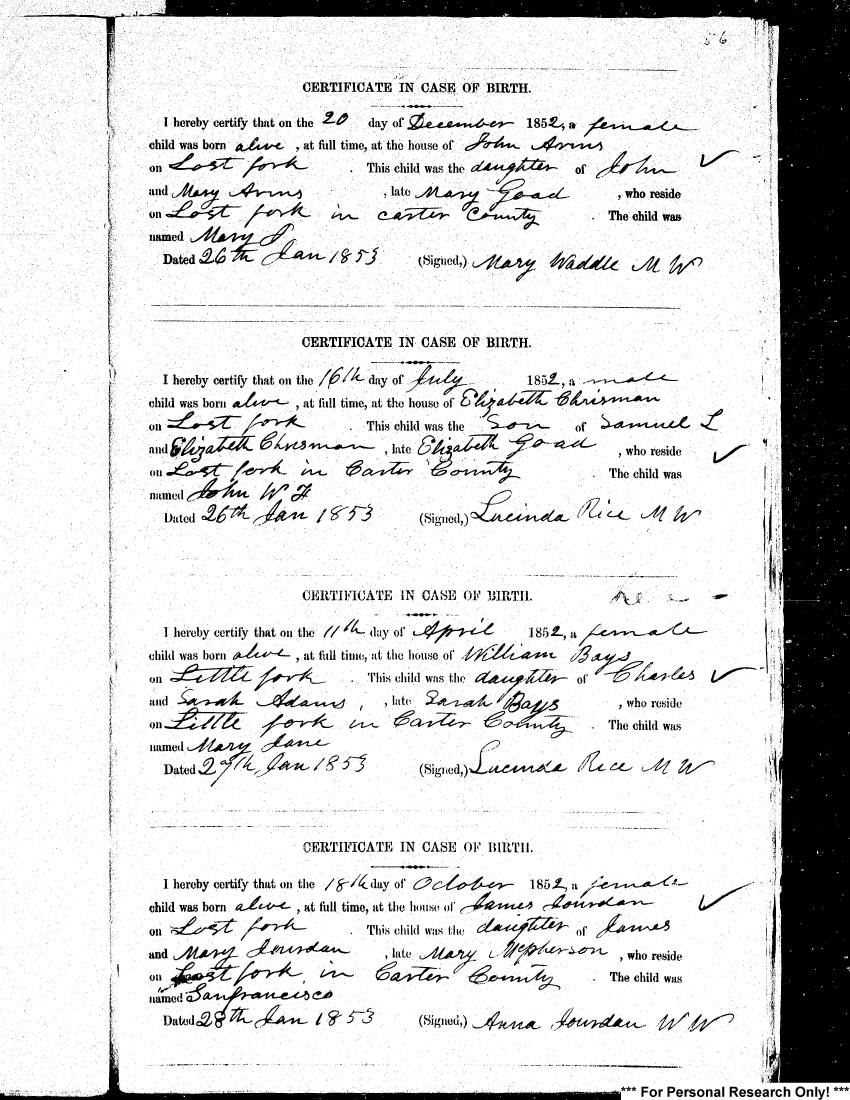 56
CERTIFICATE IN CASE OF BIRTH.
I hereby certify that on the 20 day of December 1852, a female
child was born alive, at full time, at the house of John Arms
on Lost fork . This child was the daughter of John
and Mary Arms , late Mary Goad , who reside
on Lost fork in Carter County . The child was
named Mary J
Dated 26th Jan 1853 (Signed,) Mary Waddle M W
CERTIFICATE IN CASE OF BIRTH.
I hereby certify that on the 16th day of July 1852, a male
child was born alive, at full time, at the house of Elizabeth Chrisman
on Lost fork . This child was the Son of Samuel L
and Elizabeth Chrisman , late Elizabeth Goad , who reside
on Lost fork in Carter County . The child was
named John W F
Dated 26th Jan 1853 (Signed,) Lucinda Rice M W
CERTIFICATE IN CASE OF BIRTH.
I hereby certify that on the 11th day of April 1852, a female
child was born alive, at full time, at the house of William Bays
on Little fork . This child was the daughter of Charles
and Sarah Adams, , late Sarah Bays , who reside
on Little fork in Carter County . The child was
named Mary Jane
Dated 27th Jan 1853 (Signed,) Lucinda Rice M W
CERTIFICATE IN CASE OF BIRTH.
I hereby certify that on the 18th day of October 1852, a female
child was born alive, at full time, at the house of James Jourdan
on Lost fork . This child was the daughter of James
and Mary Jourdan , late Mary Mcpherson , who reside
on Lost fork in Carter County . The child was
named Sanfrancisco
Dated 28th Jan 1853 (Signed,) Anna Jourdan W W
*** For Personal Research Only! ***